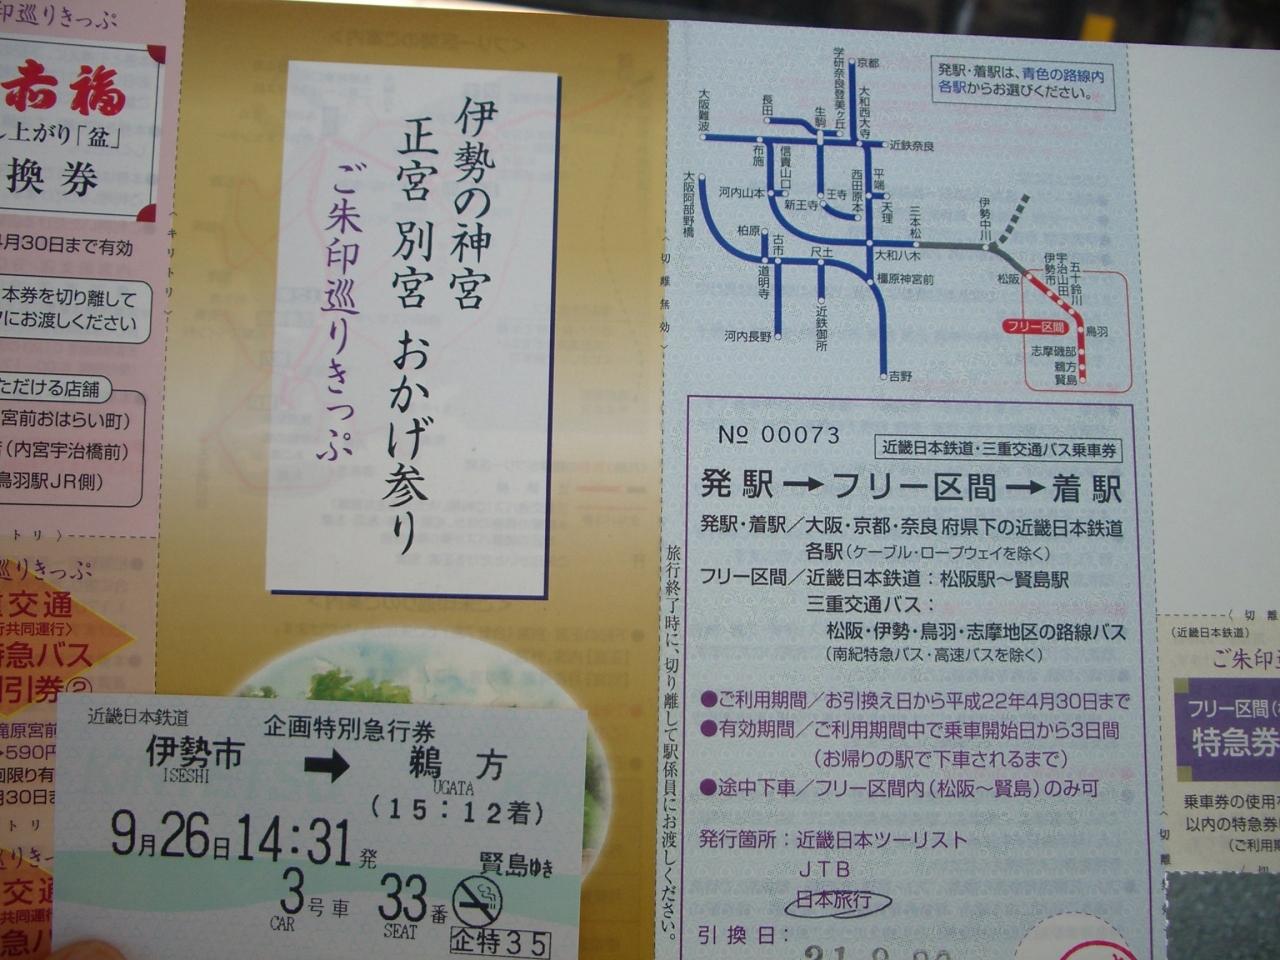 印巡りきっぷ
赤福
し上がり「盆」
換券
4月30日まで有効
本券を切り離して
にお渡しください
ただける店舗
宮前おはらい町)
(内宮宇治橋前)
鳥羽駅JR側)
巡りきっぷ
交通
行共同運行〉
特急バス
割引券②
滝原宮前
590円
回限り有
月30日ま
〈キリトリ〉
伊勢の神宮
正宮 別宮 おかげ参り
ご朱印巡りきっぷ
切離無効
旅行終了時に、切り離して駅係員にお渡しください。
発駅・着駅は、青色の路線内
各駅からお選びください。
京都
学研奈良登美ヶ丘
大和西大寺
生駒
長田
大阪難波
近鉄奈良
布施
信貴山口
河内山本
王寺
新王寺
西田原本
平端
天理
大阪阿部野橋
柏原
古市
道明寺
尺土
三本松
大和八木
橿原神宮前
河内長野
近鉄御所
吉野
伊勢中川
松阪
伊勢市
宇治山田
五十鈴川
フリー区間
鳥羽
志摩磯部
鵜方
賢島
№ 00073
近畿日本鉄道・三重交通バス乗車券
発駅→フリー区間→着駅
発駅・着駅/大阪・京都・奈良府県下の近畿日本鉄道
各駅(ケーブル・ロープウェイを除く)
フリー区間/近畿日本鉄道:松阪駅〜賢島駅
三重交通バス:
松阪・伊勢・鳥羽・志摩地区の路線バス
(南紀特急バス・高速バスを除く)
●ご利用期間/お引換え日から平成22年4月30日まで
●有効期間/ご利用期間中で乗車開始日から3日間
(お帰りの駅で下車されるまで)
●途中下車/フリー区間内(松阪〜賢島)のみ可
発行箇所:近畿日本ツーリスト
JTB
日本旅行
引換日:
近畿日本鉄道
企画特別急行券
伊勢市 → 鵜方
ISESHI UGATA
(15:12着)
9月26日14:31発
賢島ゆき
3号車 33番
CAR SEAT
企特35
〈切離
(近畿日本鉄道)
ご朱印
フリー区間
特急券
乗車券の使用
以内の特急券
(ご利用期